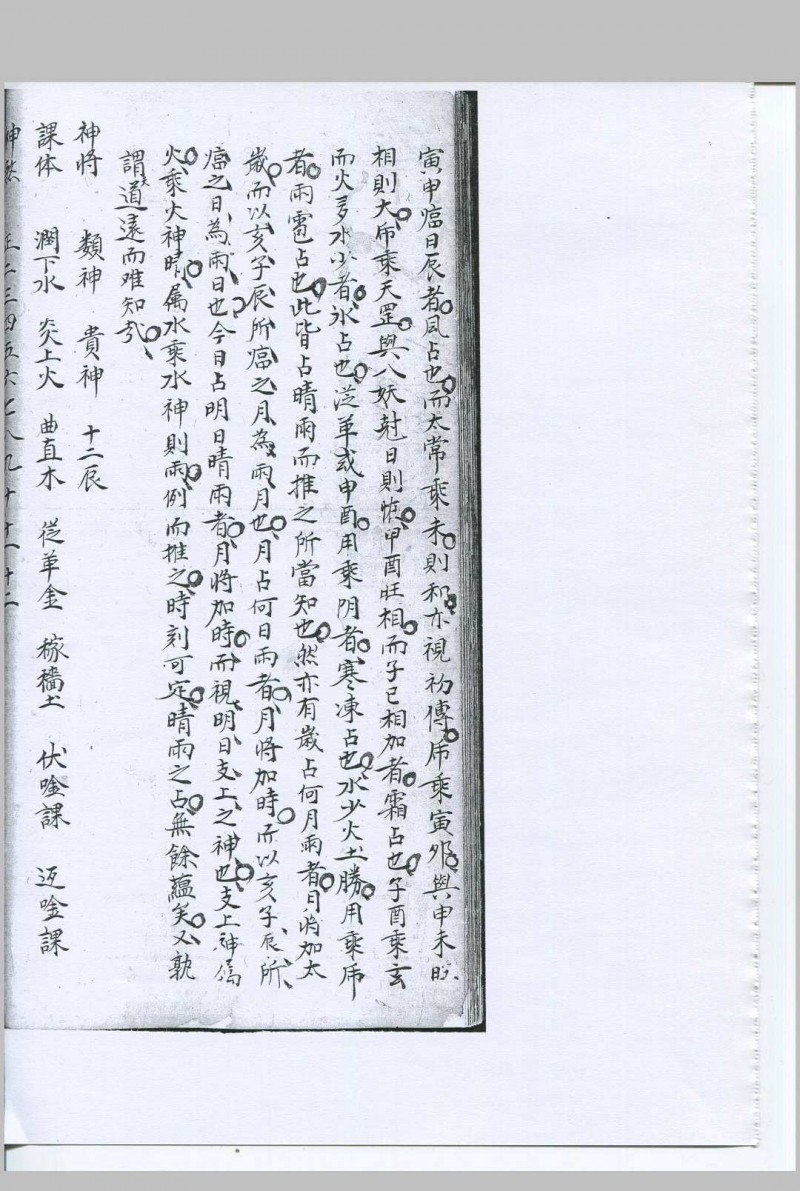 寅甲临日辰者風占也而太常乘未則和亦視初傳虎乘寅卯與申未旺
相則大虎乘天罡與八妖尅日則怪甲酉旺相而子巳相加者霜占也子酉乘玄
而火多水少者氷占也從革或申酉用乘阴者寒凍占也水少火土勝用乘虎
者雨雹占也此皆占晴雨而推之所當知也然亦有歲占何月雨者月將加太
歲而以亥子辰所临之月為雨月也月占何日雨者月將加時而以亥子辰所
临之日為雨日也今日占明日晴雨者月將加時而視明日支上之神也支上神属
火乘火神晴属水乘水神則雨例而推之時刻可定晴雨之占無餘蘊矣又孰
謂天道遠而难知哉
神將 類神 貴神 十二辰
課体 潤下水 炎上火 曲直木 從革金 稼穡土 伏唫課 返唫課
神煞 正二三四五六七八九十十一十二